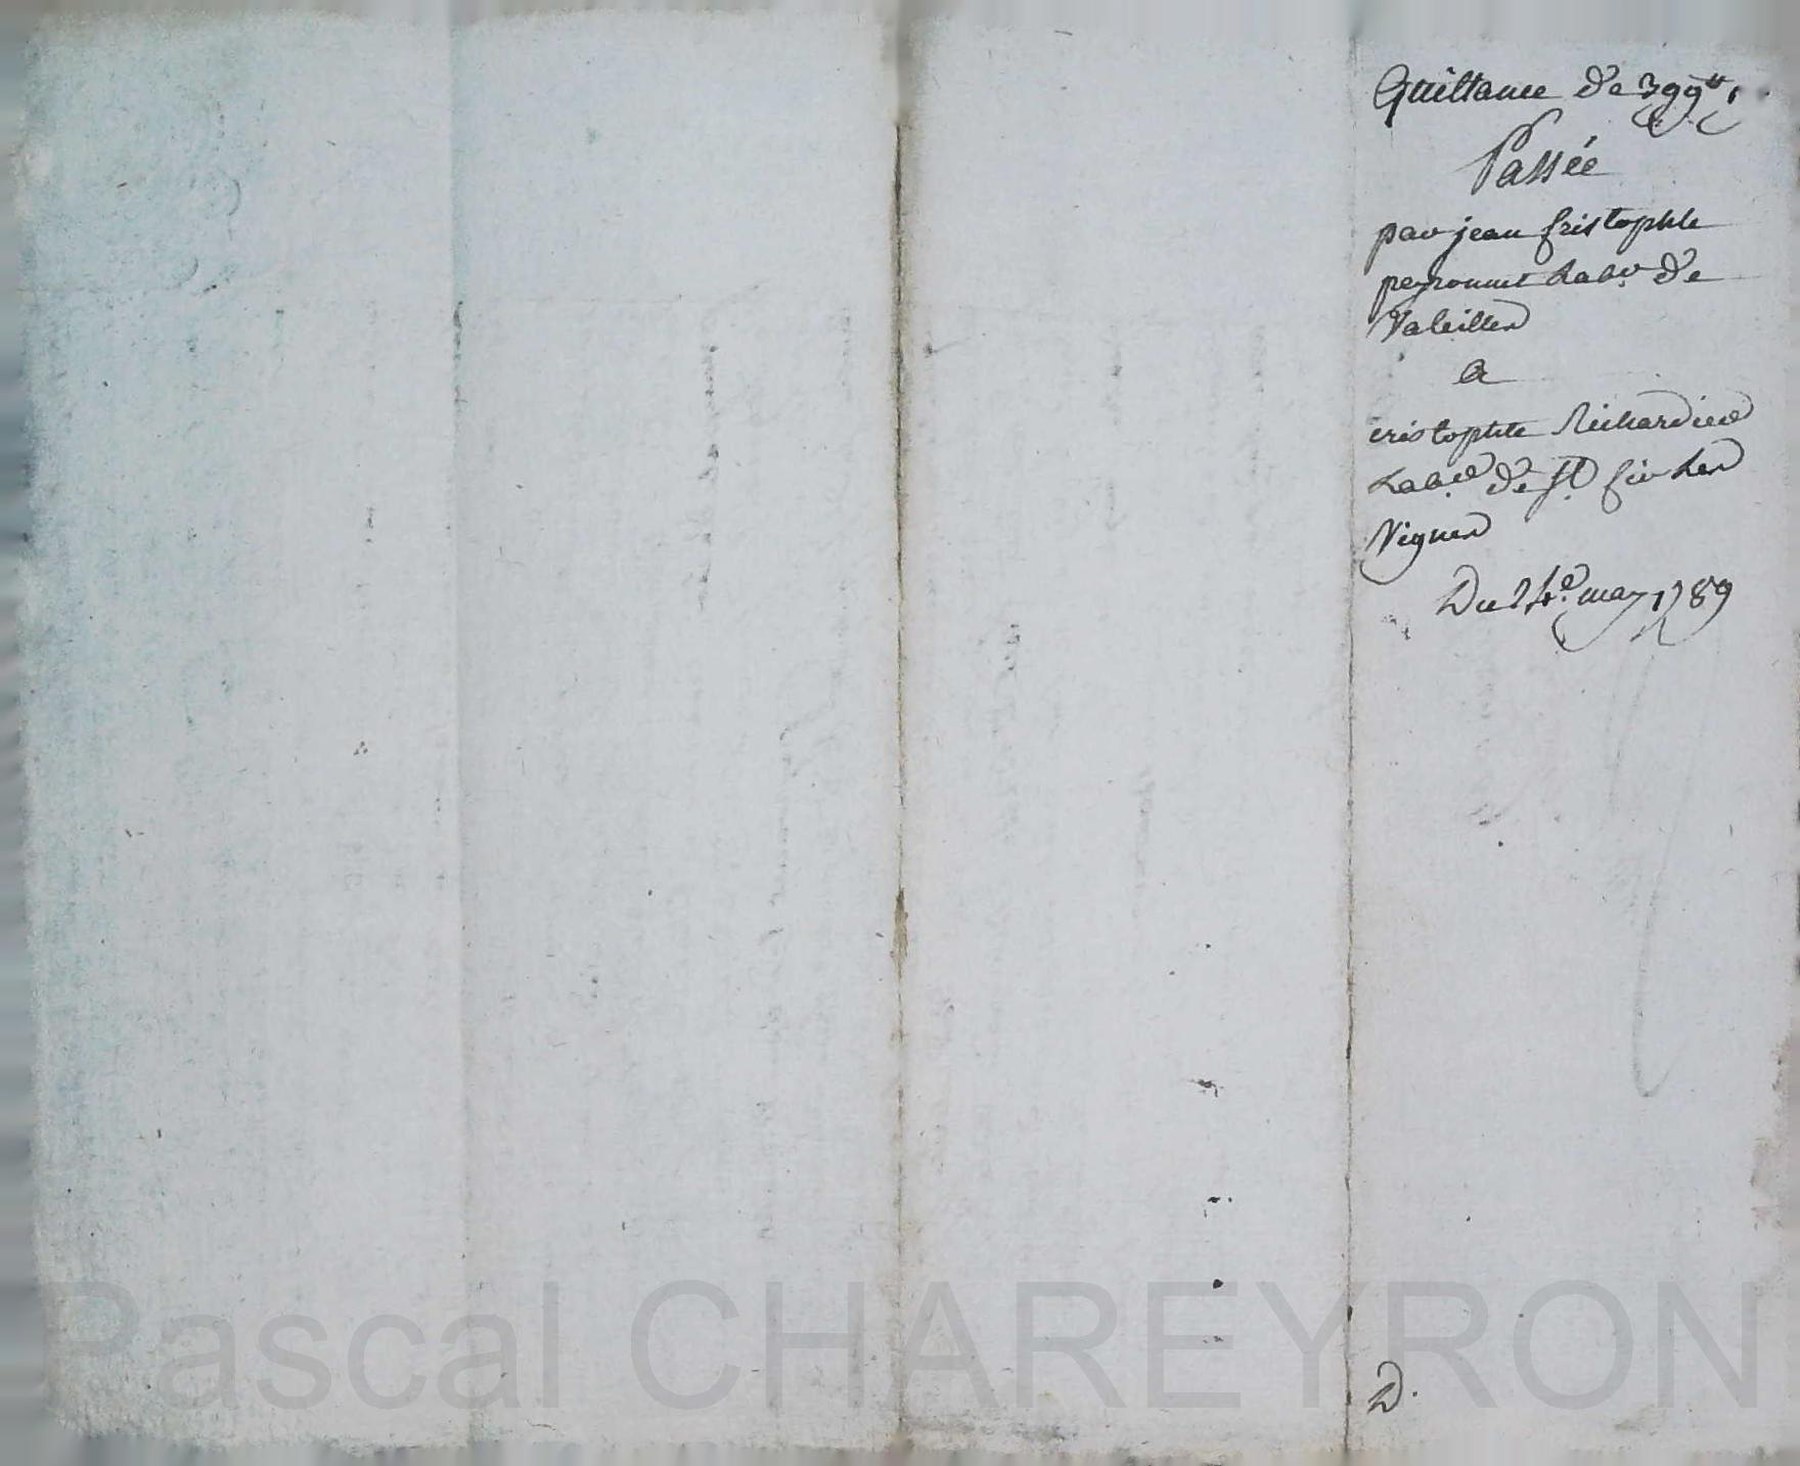 Quittance de 399tt
Passée
par jean Cristophle
peyronnet Labr. de
Valeilles
a
cristophle Richardier
Labr. de St. Cir Les
Vignes
Du 24e. may 1789
D.
Pascal CHAREYRON